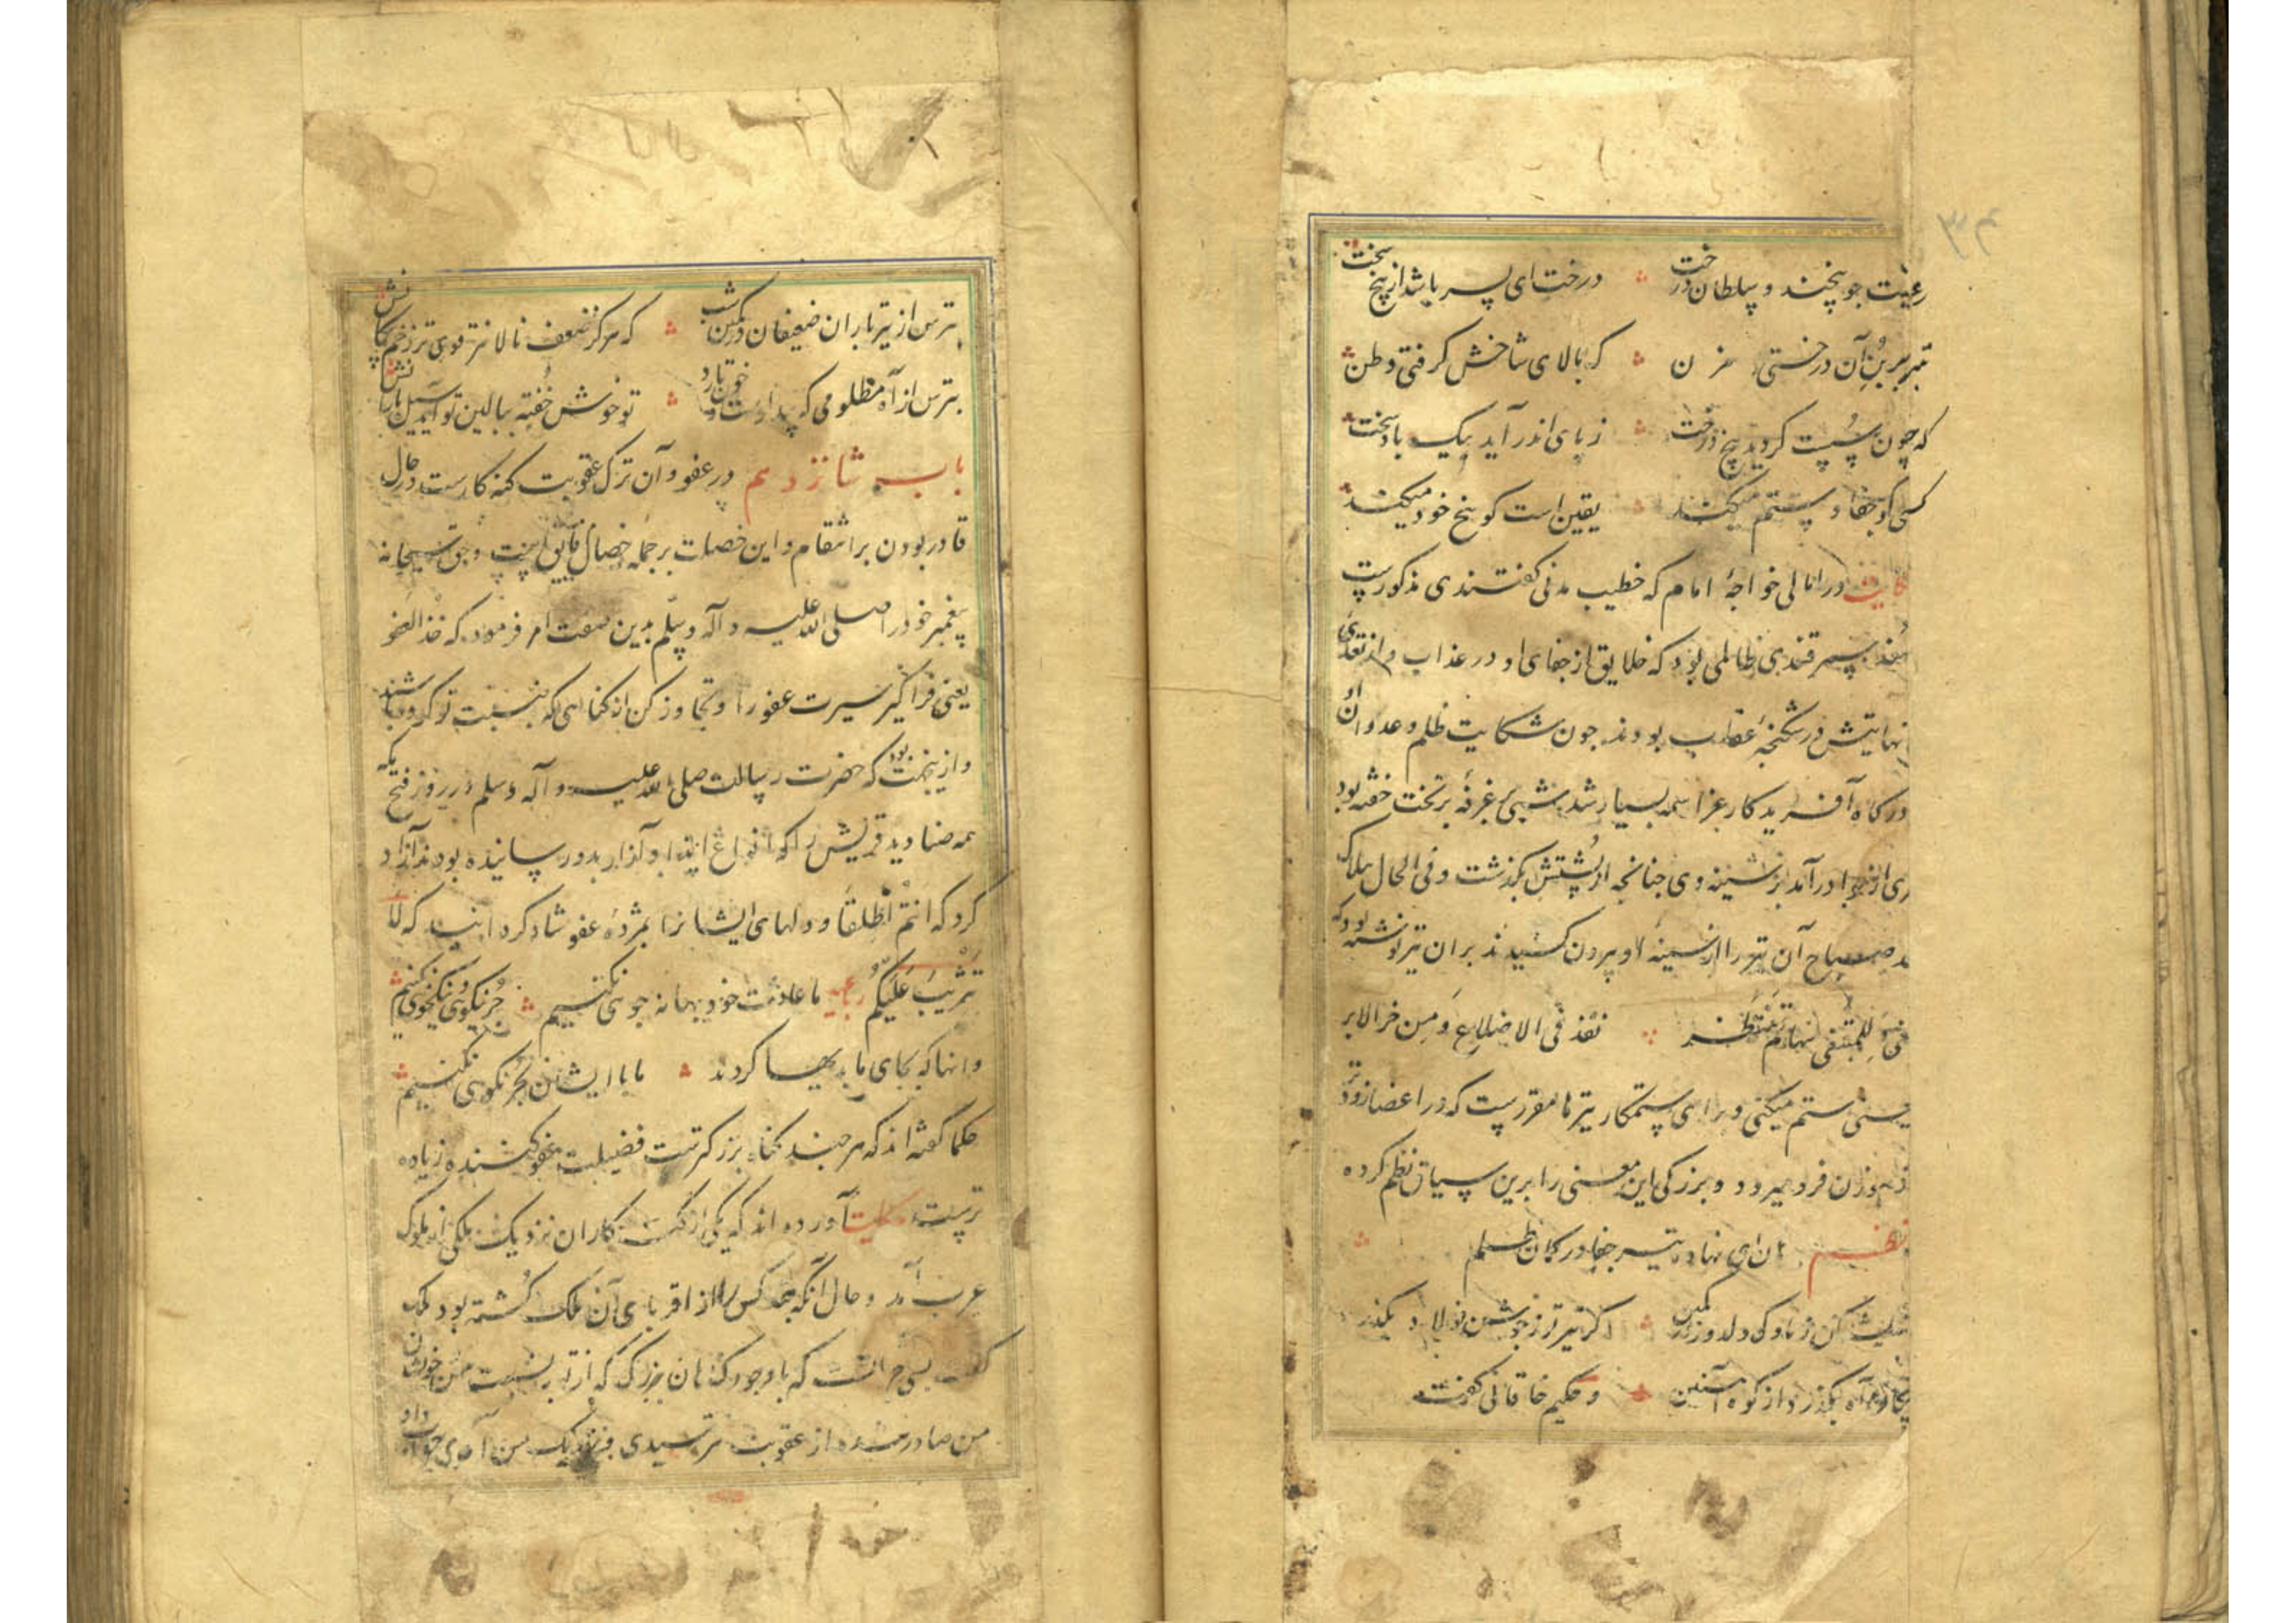 رعیت جو بیخند و سلطان درخت درخت ای پسر باشد از بیخ سخت
تبر بر بن آن درختی مزن که بالای شاخش گرفتی وطن
که چون سست گردید بیخ درخت ز پای اندر آید بیک باد سخت
کسی کو جفا و ستم میکند یقین است کو بیخ خود میکند
حکایت در امالی خواجۀ امام که خطیب مدنی گفتندی مذکورست
سمرقندی ظالمی بود که خلایق از جفای او در عذاب و از تعدی
نهایتش در شکنجۀ عقاب بودند جون شکایت ظلم و عدوان او
درکاه آفریدکار عز اسمه بسیار شد شبی بر غرفه بر تخت خفته بود
ری از هوا درآمد بر سینه وی جنانجه از پشتش بکذشت و فی الحال هلاک
صباح آن تیر را از سینه او بیرون کشیدند بر ان تیر نوشته بود که
تنتظر نفذ فی الاضلاع و من خر الابر
ستم میکنی و برای ستمکار تیرها مقررست که در اعضا زودتر
سوزن فرو میرود و بزرکی این معنی را برین سیاق نظم کرده
نظم ان ای نهاده تیر جفا در کمان ظلم
اندیشه کن ز ناوک دلدوز در کمین اکر تیر تو ز جوشن فولاد بکذرد
پیکان آه بکذرد از کوه آهنین و حکیم خاقانی کفت
بترس از تیرباران ضعیفان در کمین شب که هرکز ضعف نالانتر قوی‌تر زخم پیکانش
بترس از آه مظلومی که بیدارست و خونبارد تو خوش خفته ببالین تو آید سیل بارانش
باب شانزدهم در عفو و آن ترک عقوبت کنه کارست در حال
قادر بودن بر انتقام و این خصلت بر جمله خصال فایق است و حق سبحانه
پیغمبر خود را صلی الله علیه و آله و سلم بدین صفت امر فرمود که خذ العفو
یعنی فراکیر سیرت عفو را و تجاوز کن از کناهی که بنسبت تو کرده باشند
و ازینجهت بود که حضرت رسالت صلی الله علیه و آله و سلم در روز فتح مکه
همه صنادید قریش را که انواع ایذا و آزار بدو رسانیده بودند آزاد
کرد که انتم الطلقا و دلهای ایشانرا بمژدۀ عفو شاد کردانید که لا
تثریب علیکم رباعیه ما عادت خود بهانه جوی نکنیم جز نیکوی و نیکخوی نکنیم
وانها که بجای ما بدیها کردند ما با ایشان بجز نکوی نکنیم
حکما کفته‌اند که هرجند کناه بزرکترست فضیلت عفو کننده زیاده
ترست حکایت آورده‌اند که یکی از کنه کاران نزدیک ملکی از ملوک
عرب آمد و حال آنکه جند کس را از اقربای آن ملک کشته بود ملک
کفت بس که با وجود کناهان بزرک که از تو بنسبت من و خویشان
من صادر شده از عقوبت نترسیدی و بنزدیک من آمدی جواب داد